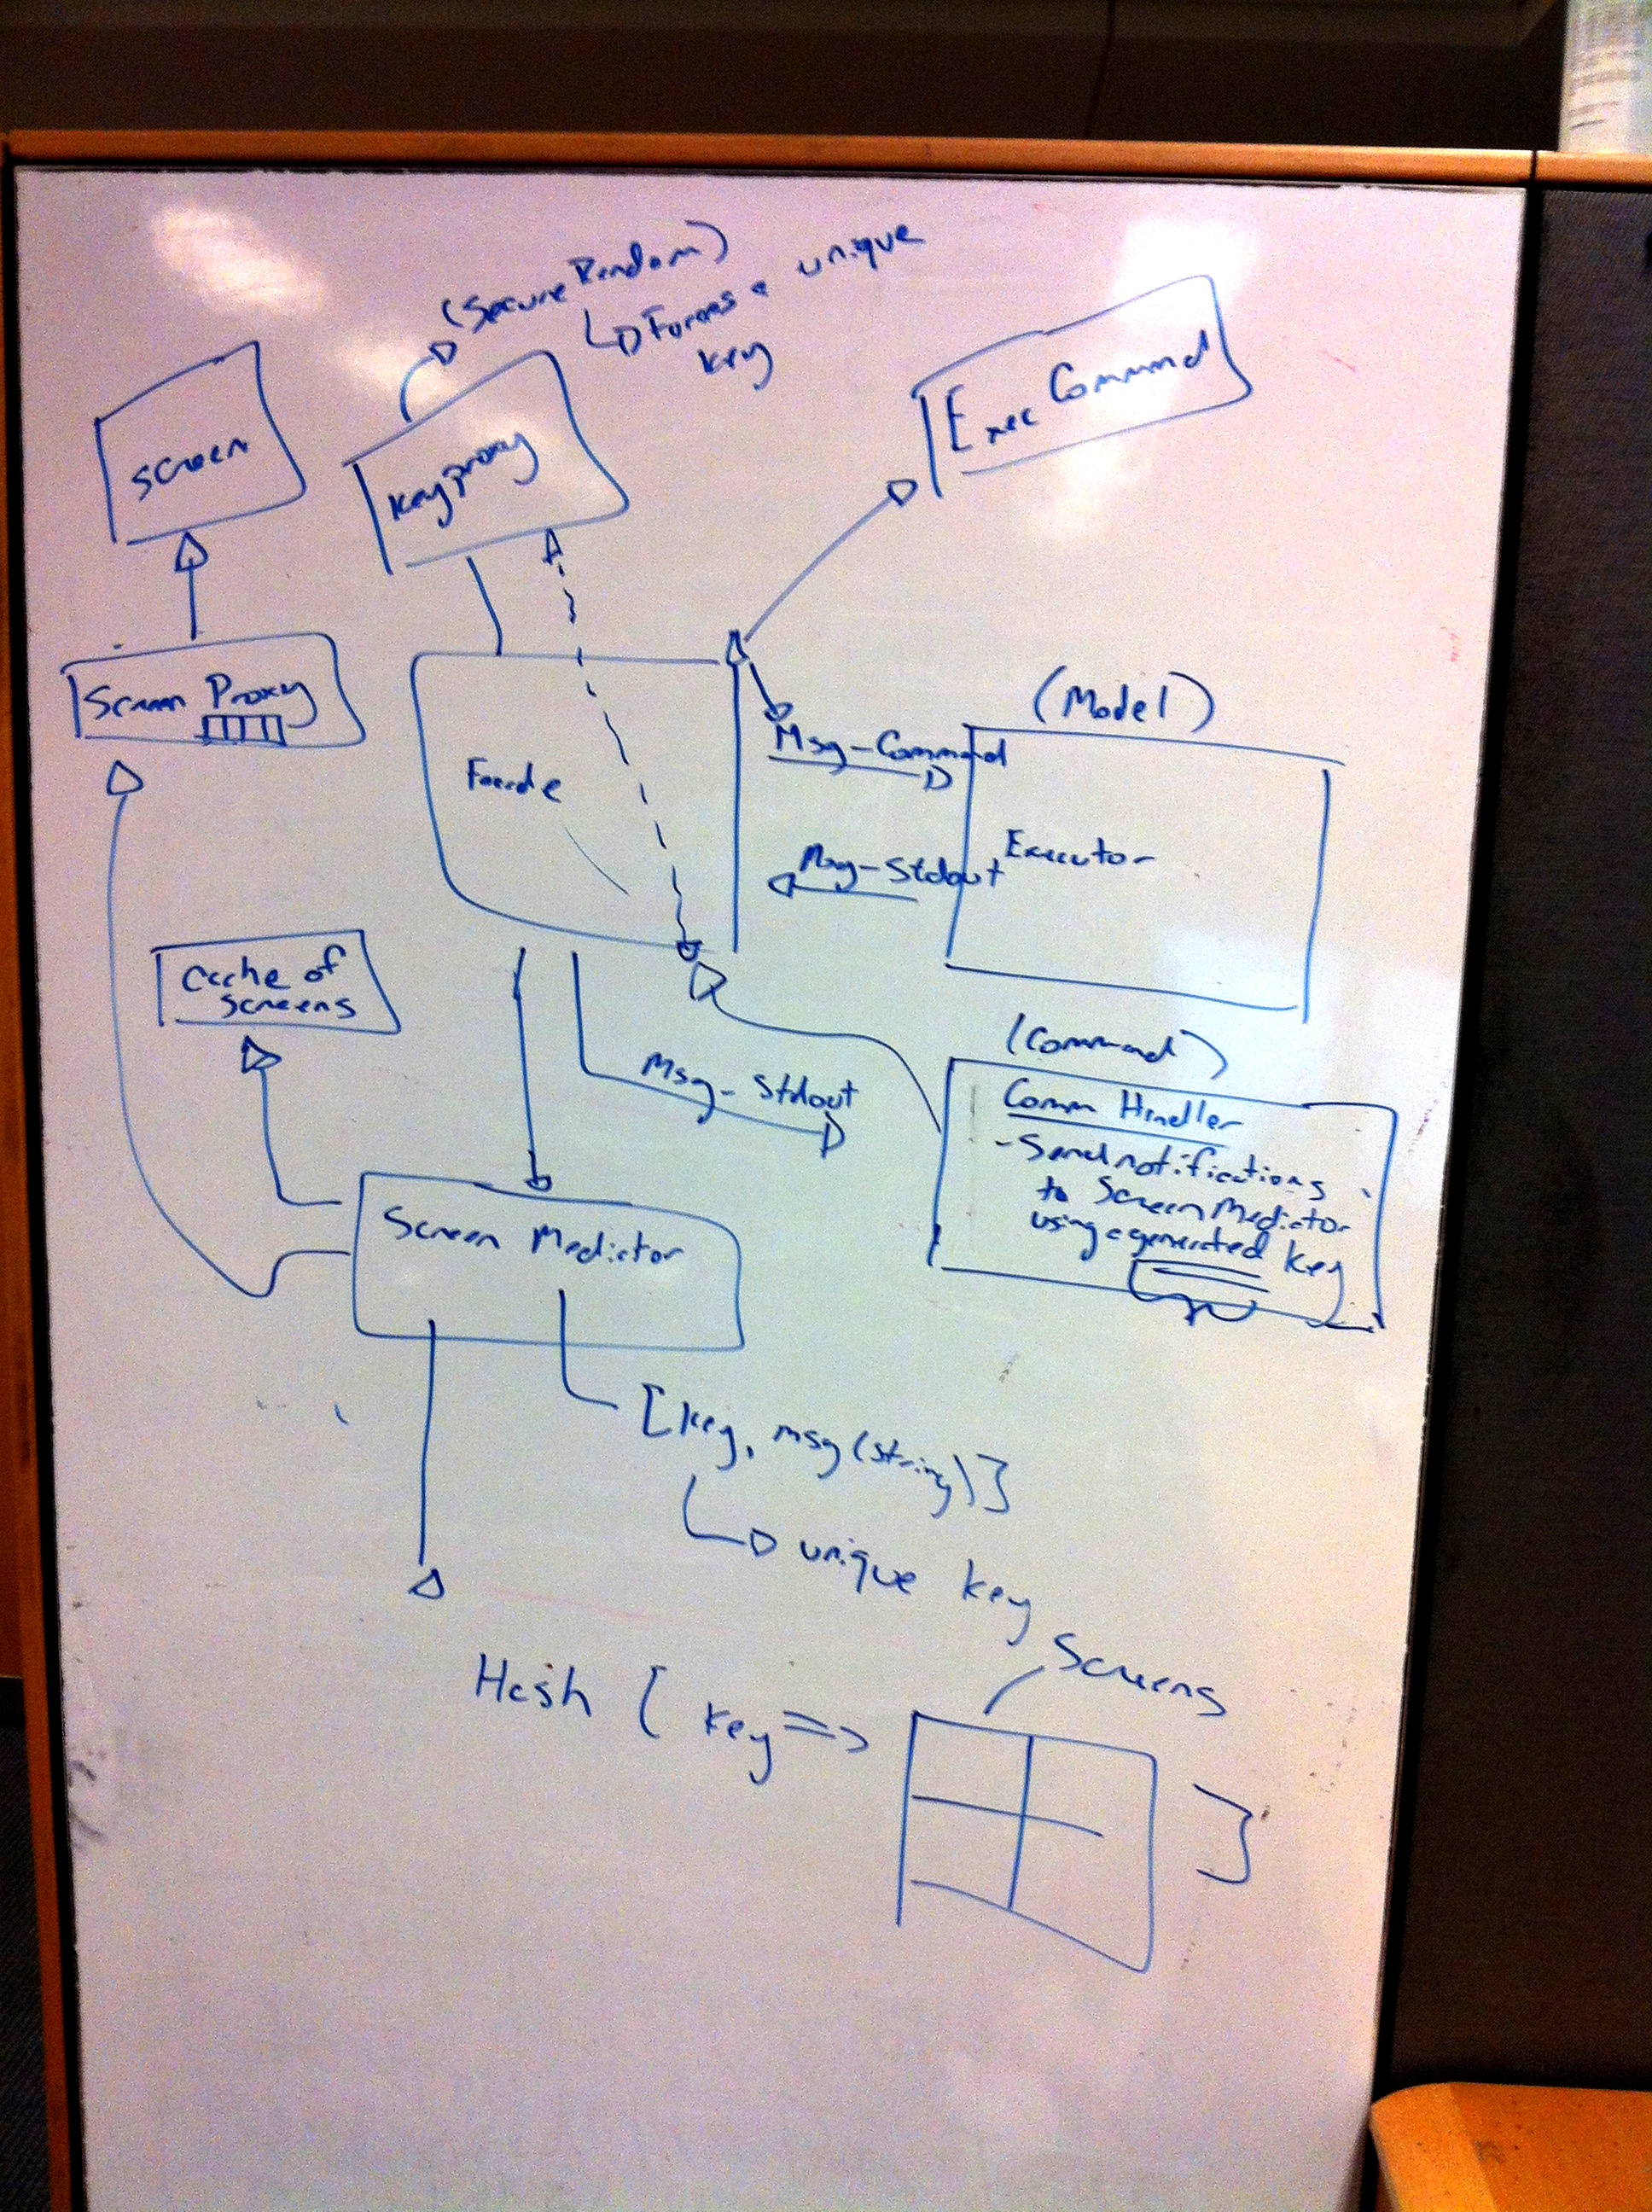 (Secure Random)
Forces a unique
key
Exec Command
screen
key proxy
Screen Proxy
(Model)
Msg-Command
Facade
Executor
Msg-Stdout
Cache of
screens
(Command)
Msg-Stdout
Comm Handler
- Send notifications
to Screen Mediator
using a generated key
Screen Mediator
[key, msg(string)]
unique key
Screens
Hash { key =>
}